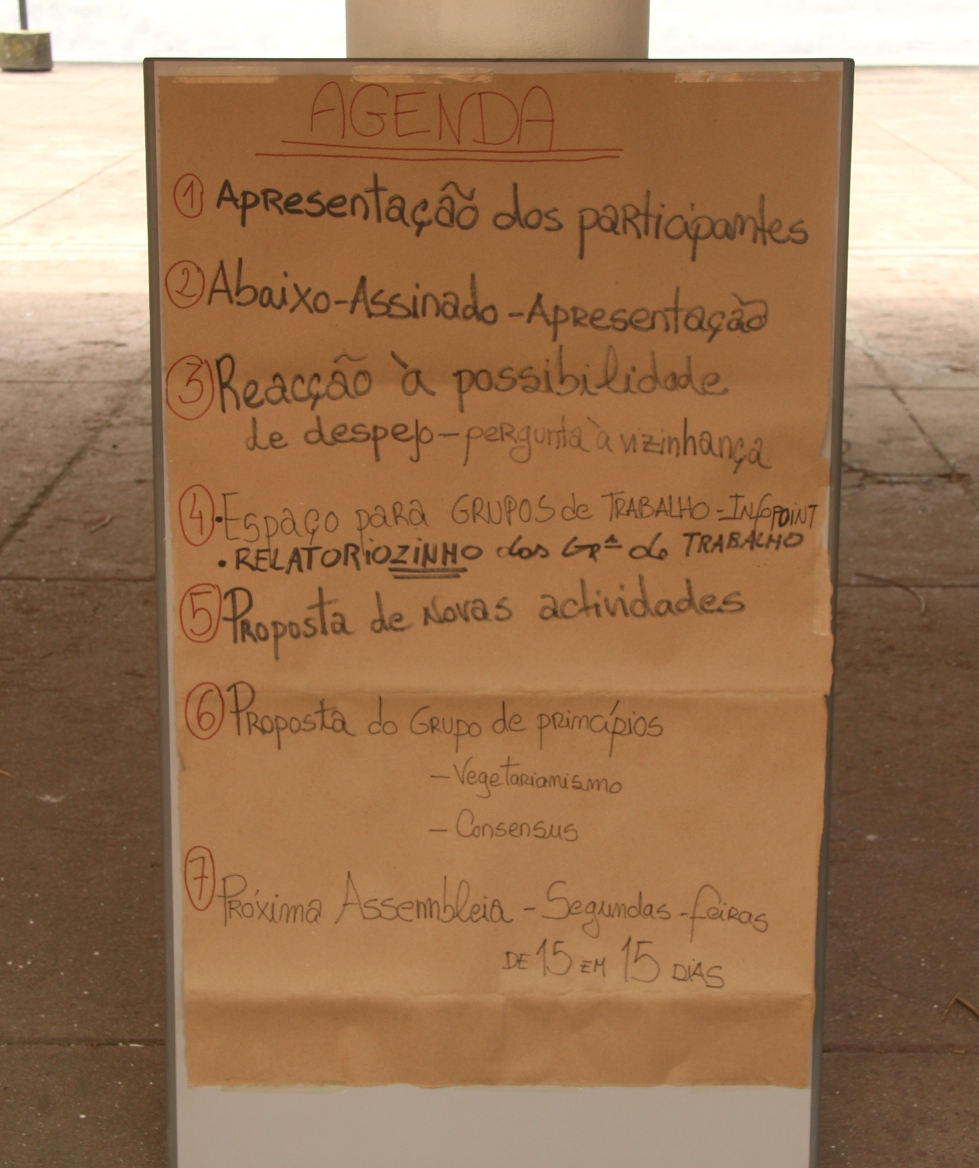 AGENDA
1 Apresentação dos participantes
2 Abaixo-Assinado - Apresentação
3 Reacção à possibilidade
de despejo - pergunta à vizinhança
4 • Espaço para GRUPOS de TRABALHO - INFOPOINT
• RELATORIOZINHO dos GRºˢ de TRABALHO
5 Proposta de Novas actividades
6 Proposta do Grupo de princípios
- Vegetarianismo
- Consensus
7 Próxima Assembleia - Segundas-feiras
DE 15 EM 15 DIAS